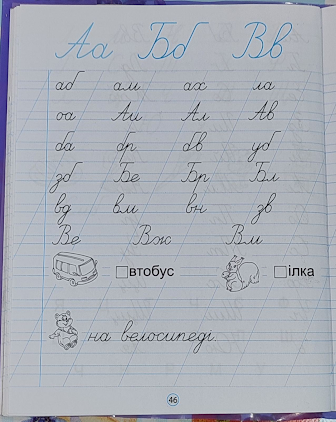 Аа Бб Вв
аб ам ах ла
оа Аи Ал Ав
ба бр бв уб
зб Бе Бр Бл
вд вм вн зв
Ве Вж Вм
□втобус □ілка
на велосипеді.
46